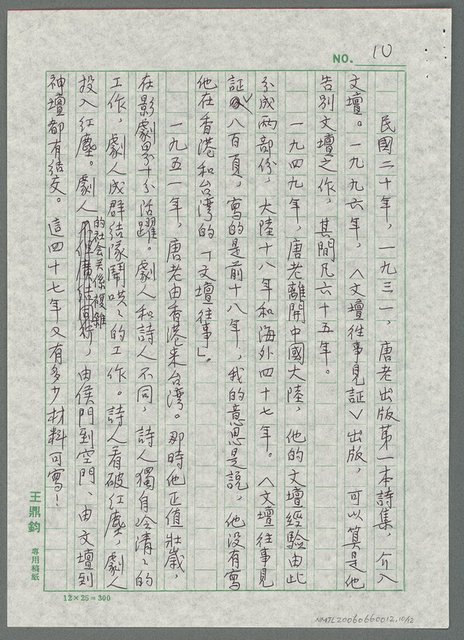 NO. 10
民國二十年，一九三一，唐老出版第一本詩集，介入
文壇。一九九六年，〈文壇往事見証〉出版，可以算是他
告別文壇之作，其間凡六十五年。
一九四九年，唐老離開中國大陸，他的文壇經驗由此
分成兩部份，大陸十八年和海外四十七年。〈文壇往事見
証〉八百頁，寫的是前十八年，我的意思是說，他沒有寫
他在香港和台灣的「文壇往事」。
一九五一年，唐老由香港來台灣。那時他正值壯歲，
在影劇界十分活躍。劇人和詩人不同，詩人獨自冷清清的
工作，劇人成群結隊鬧哄哄的工作。詩人看破紅塵，劇人
投入紅塵。劇人的社會関係複雜，由侯門到空門、由文壇到
神壇都有結交。這四十七年又有多少材料可寫！
王鼎鈞 專用稿紙
12×25＝300
NMTL20060660012,10/12